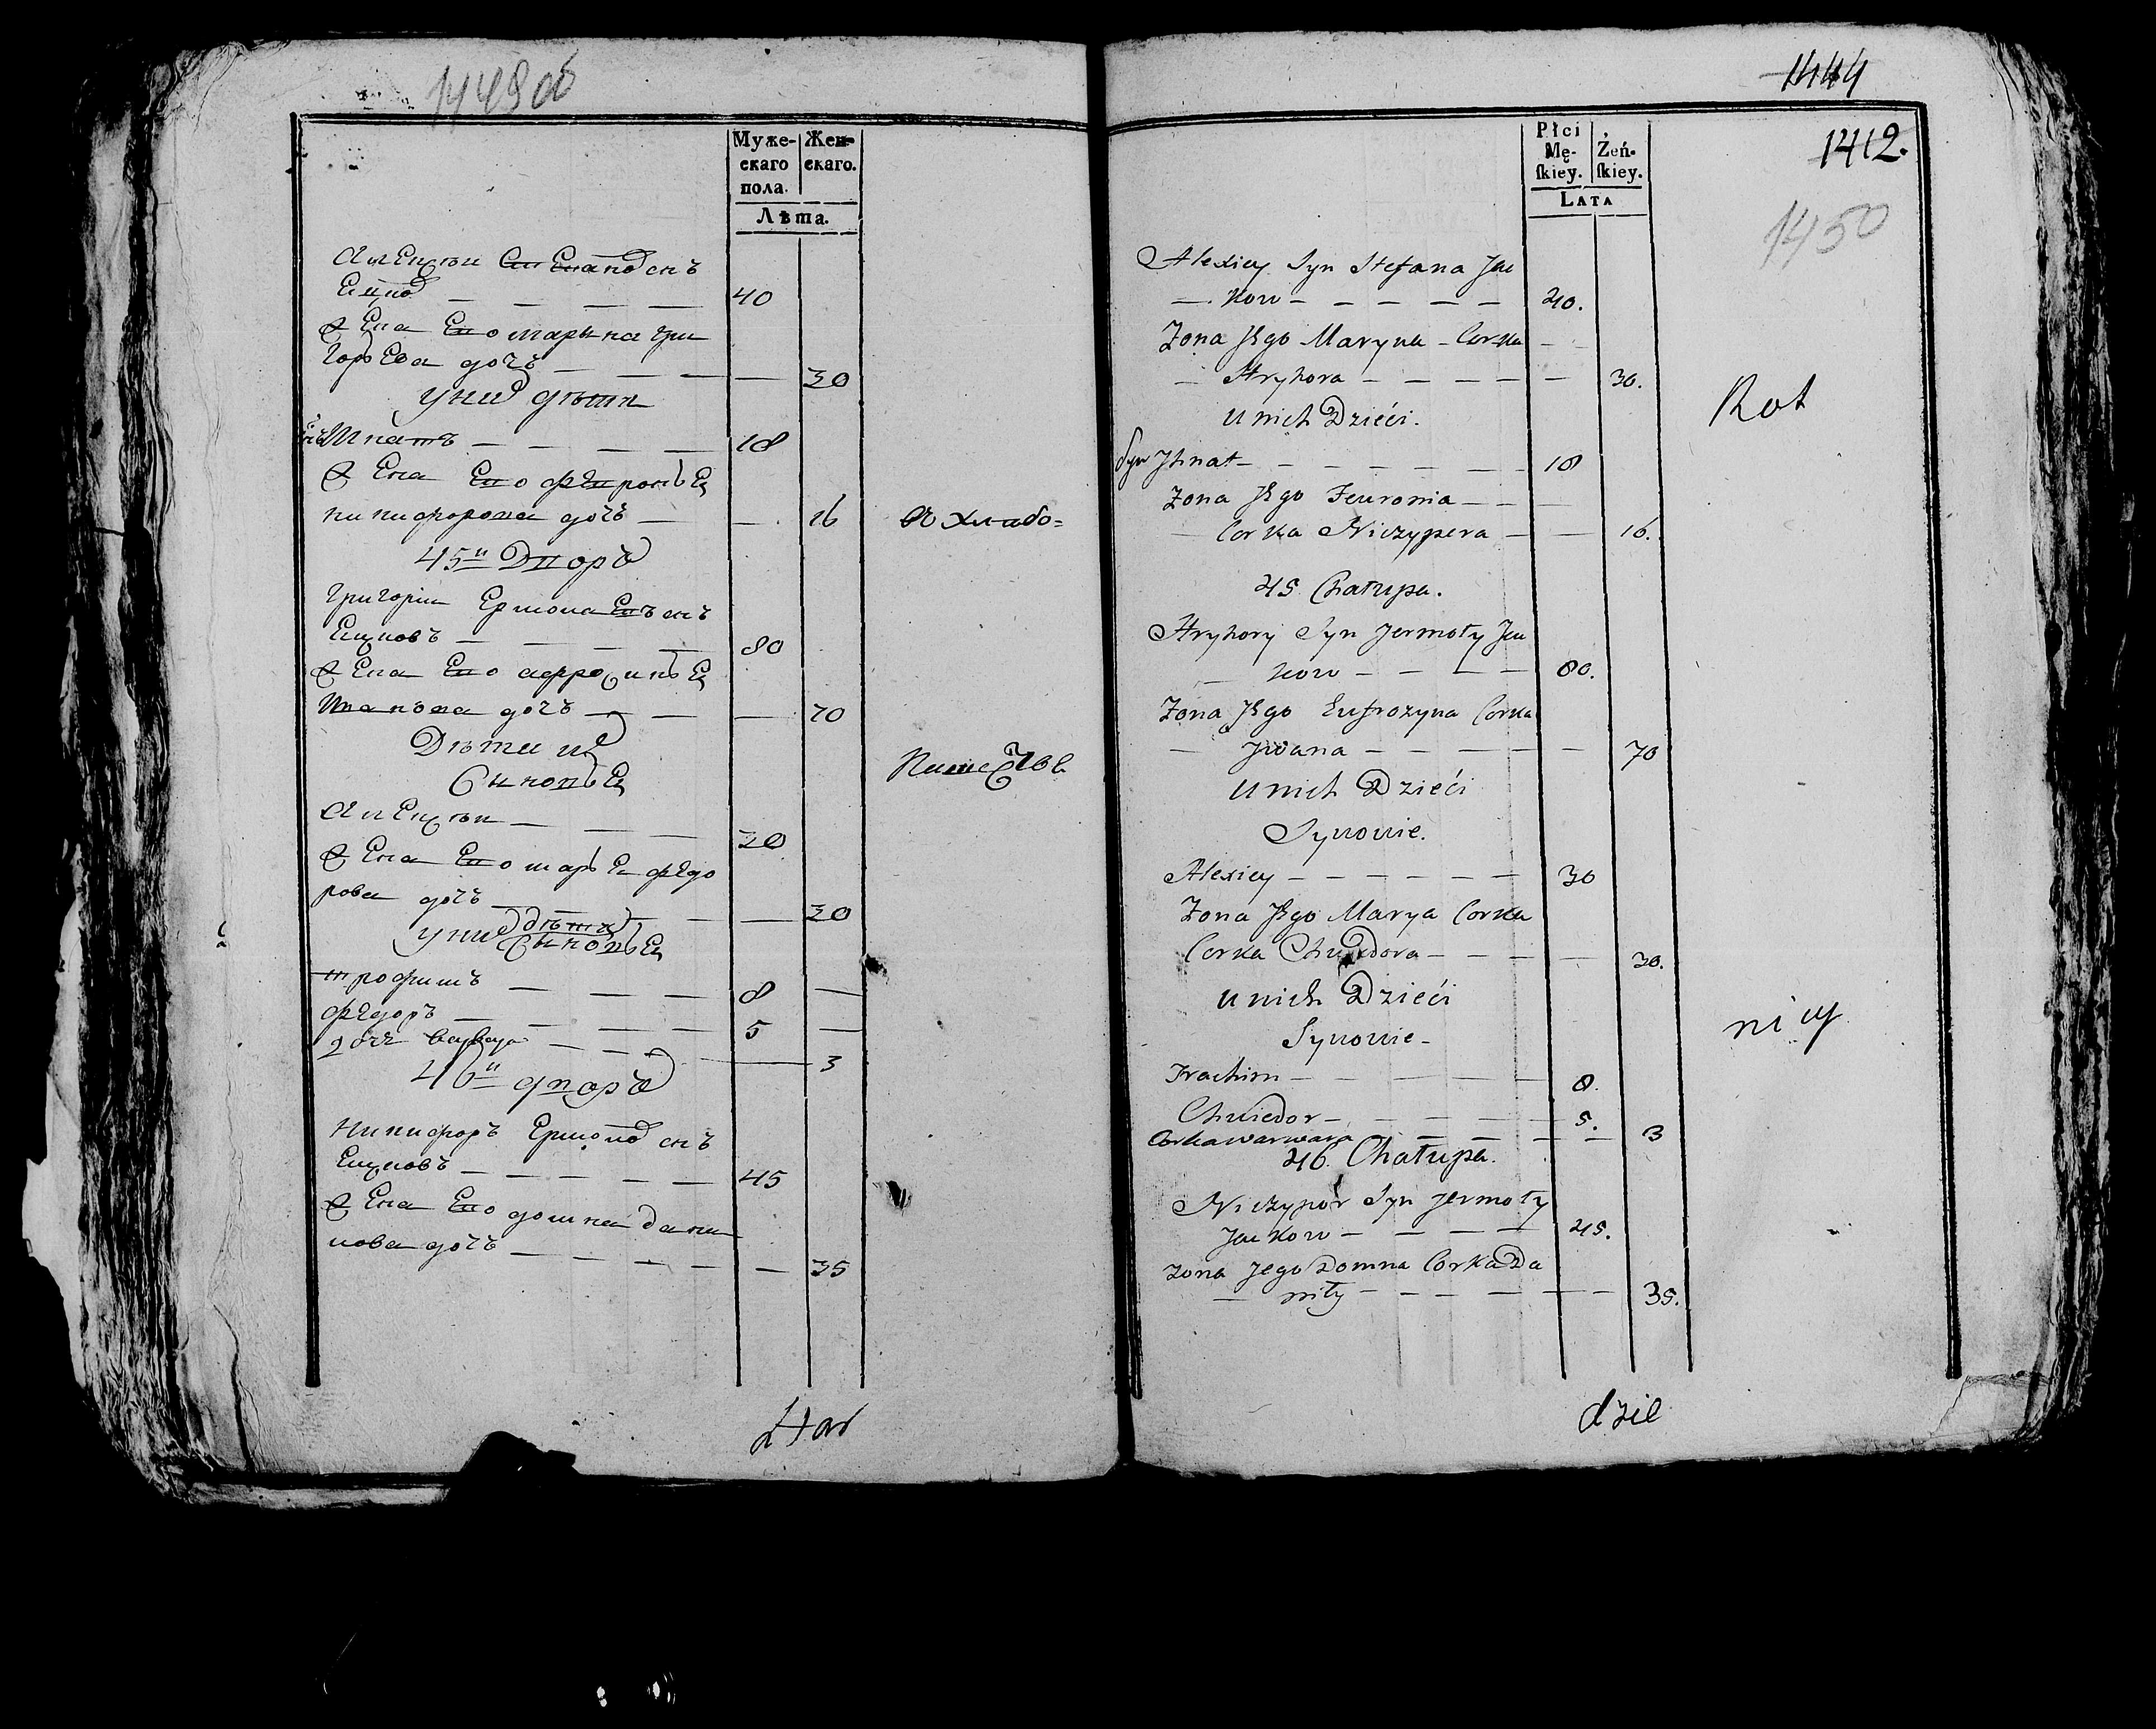 1449 об
Муже-
скаго
пола.
Жен-
скаго.
Лѣта.
Алексѣй Степановъ снъ
Ецковъ — — — — 40
Жена Его Марына Гри
горьева дочъ — — — — 30
У нихъ дѣти
снъ Игнатъ — — — — 18
Жена Его Февронья
Никифорова дочъ — — 16
Ахлабо=
45й Дворъ
Григорій Ермолаевъ снъ
Ецковъ — — — — 80
Жена Его Афросинья
Иванова дочъ — — — 70
Дѣти ихъ
Сыновья
Алексѣй — — — — 30
Жена Его Марья Федо
рова дочъ — — — — 30
У нихъ дѣти
Сыновья
Трофимъ — — — — 8 —
Федоръ — — — — 5 —
дочъ Варвара — — — — 3
46й дворъ
Никифоръ Ермоловъ снъ
Ецковъ — — — — 45
Жена Его Домна Дани
лова дочъ — — — — — 35
1444
1412.
1450
Płci
Mę-
ſkiey.
Żeń-
ſkiey.
LATA
Alexiey Syn Stefana Jac
— kow — — — — — 40.
Żona Jego Maryna — Corka —
— Hryhora — — — — — 30.
U nich Dzieći.
Syn Jhnat — — — — — — 18
Żona Jego Feuronia — —
— Corka Niczypera — — 16.
45. Chałupa.
Hryhory Syn Jermoły Jac
— kow — — — — 80.
Żona Jego Eufrozyna Corka
— Jwana — — — — — 70
U nich Dzieći
Synowie.
Alexiey — — — — — — 30
Żona Jego Marya Corka
Corka Chwiedora — — — — 30.
U nich Dzieći
Synowie —
Trachim — — — — 8.
Chwiedor — — — — 5.
Corka Warwara — — — — — 3
46. Chałupa.
Niczypor Syn Jermoły
Jackow — — — — 45.
Żona Jego Domna Corka Da
— niły — — — — — — 35.
Rot
nicy
dzie